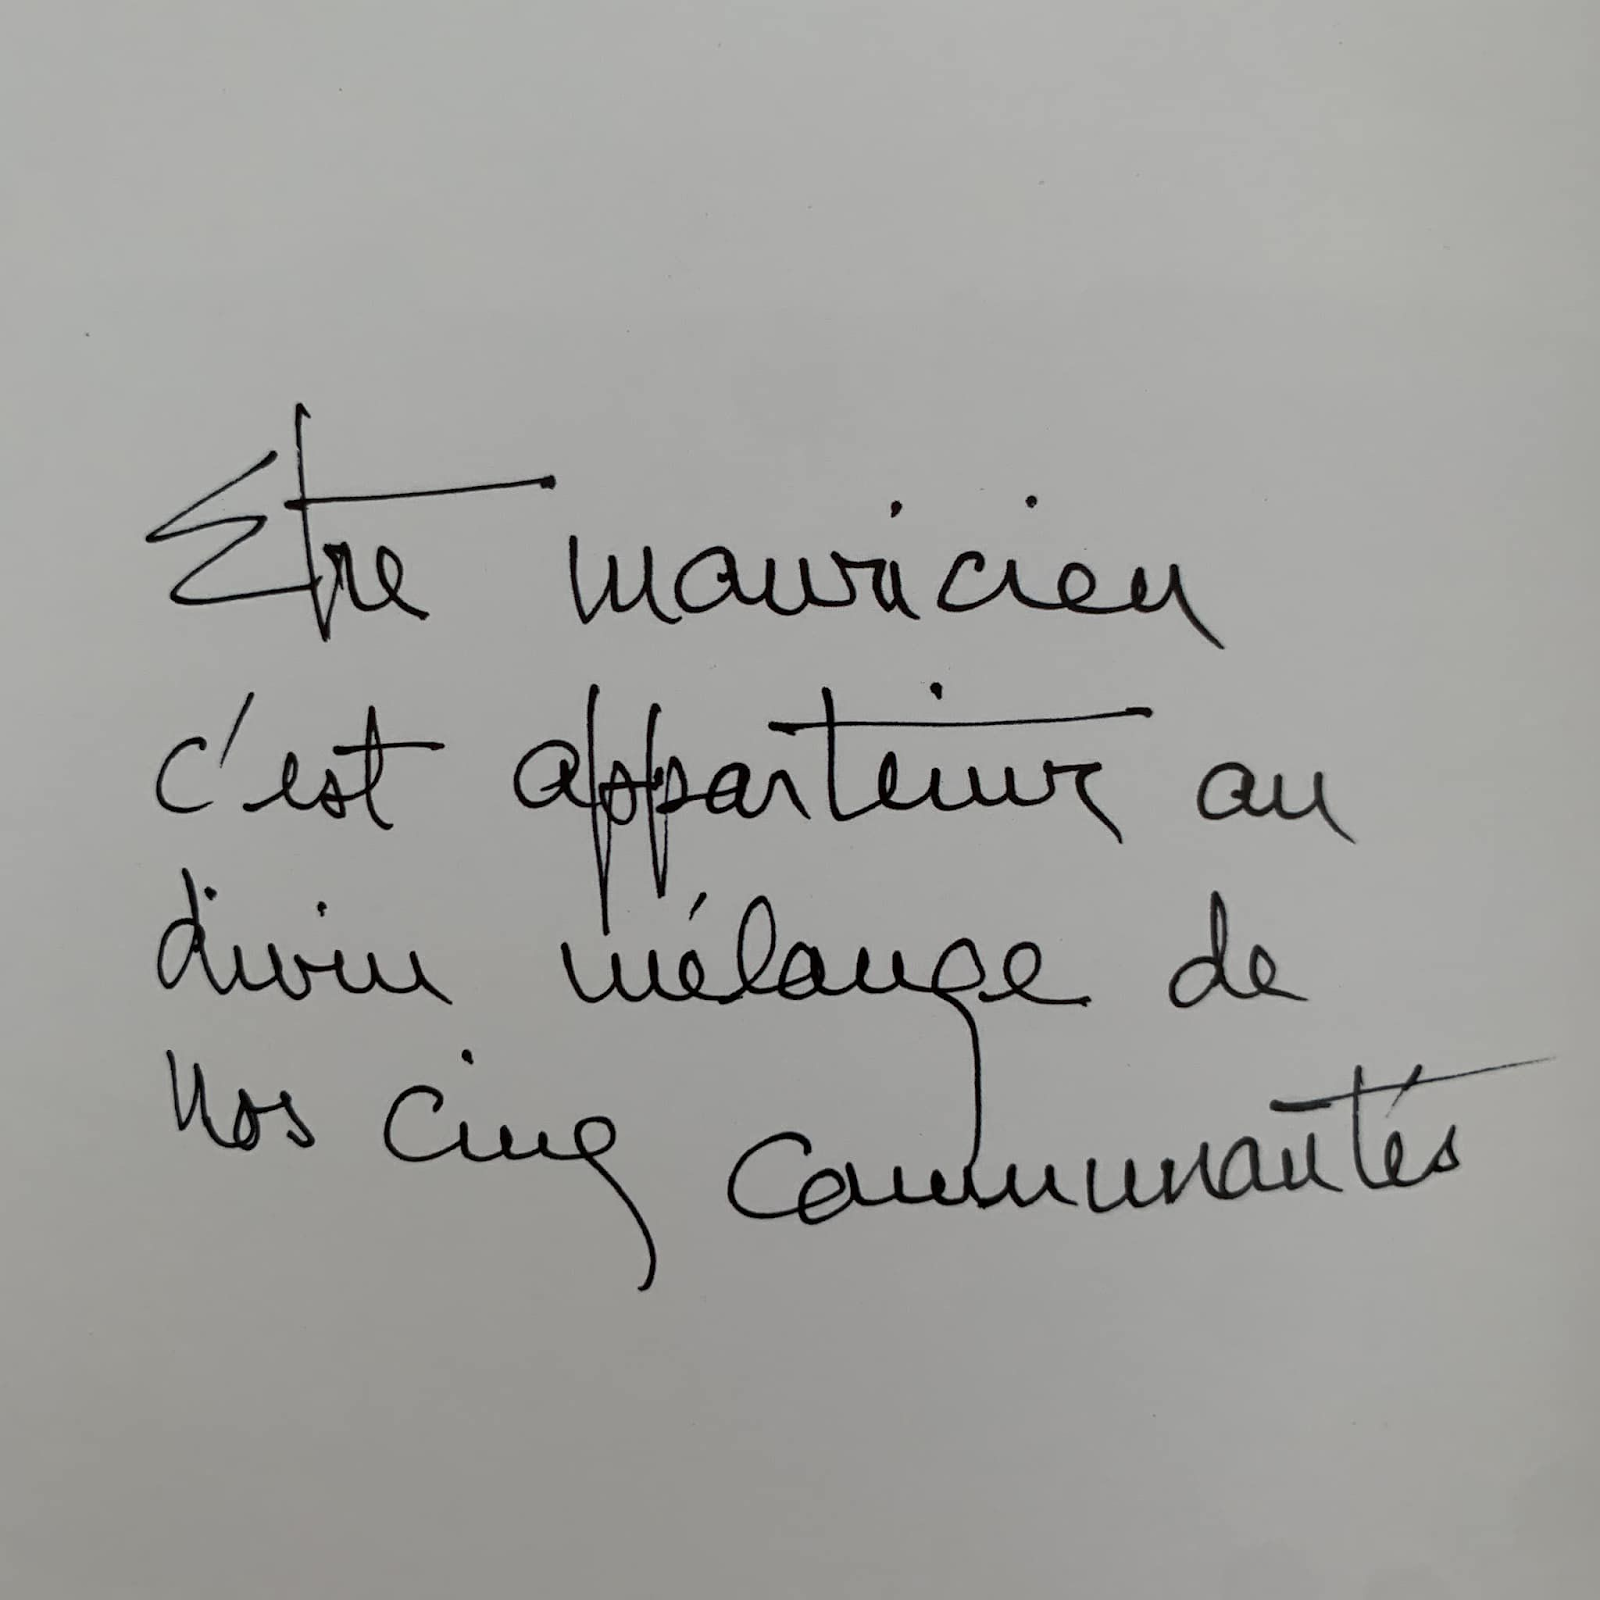 Etre mauricien
c'est appartenir au
divin mélange de
nos cinq communautés